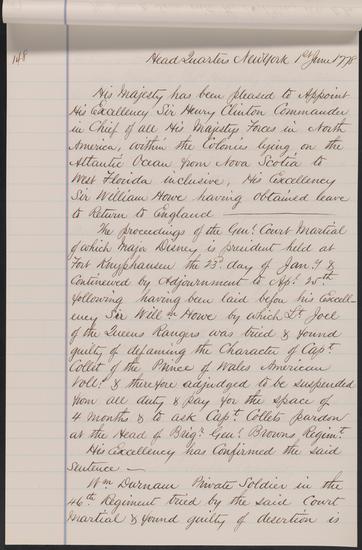 148
Head Quarters New York 1st June 1778
His Majesty has been pleased to Appoint
His Excellency Sir Henry Clinton Commander
in Chief of all His Majestys Forces in North
America, within the Colonies lying on the
Atlantic Ocean from Nova Scotia to
West Florida inclusive, His Excellency
Sir William Howe having obtained leave
to Return to England
The proceedings of the Genl. Court Martial
of which Major is president held at
Fort Knyphausen the 23d. day of Jany. &
Continued by Adjournment to Apl. 25th
following having been laid before his Excell-
ency Sir Willm. Howe by which Lt. Joel
of the Queens Rangers was tried & found
guilty of defaming the Character of Capt.
Collet of the Prince of Wales American
Voll: & therefore adjudged to be suspended
from all duty & pay for the space of
4 months & to ask Capt. Collets pardon
at the Head of Brigr. Genl. Browns Regimt.
His Excellency has confirmed the said
Sentence —
Wm Durnam Private Soldier in the
46th Regiment tried by the said Court
Martial & found guilty of desertion is